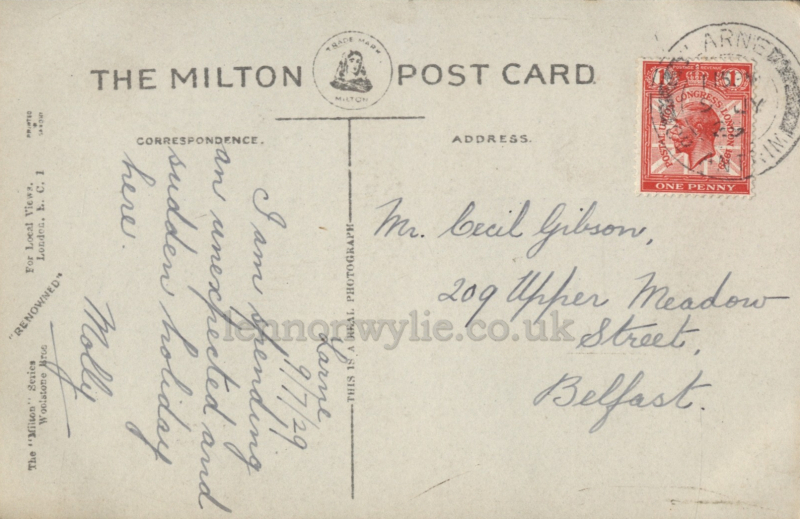 THE MILTON POST CARD
TRADE MARK
MILTON
CORRESPONDENCE.
ADDRESS.
LARNE
POSTAL UNION CONGRESS LONDON 1929
1D 1D
ONE PENNY
Larne
9/7/29
I am spending
an unexpected and
sudden holiday
here.
Molly
Mr. Cecil Gibson,
209 Upper Meadow
Street,
Belfast.
THIS IS A REAL PHOTOGRAPH
PRINTED
For Local Views.
London, E. C. 1
"RENOWNED"
The "Milton" Series
Woolstone Bros
lennonwylie.co.uk